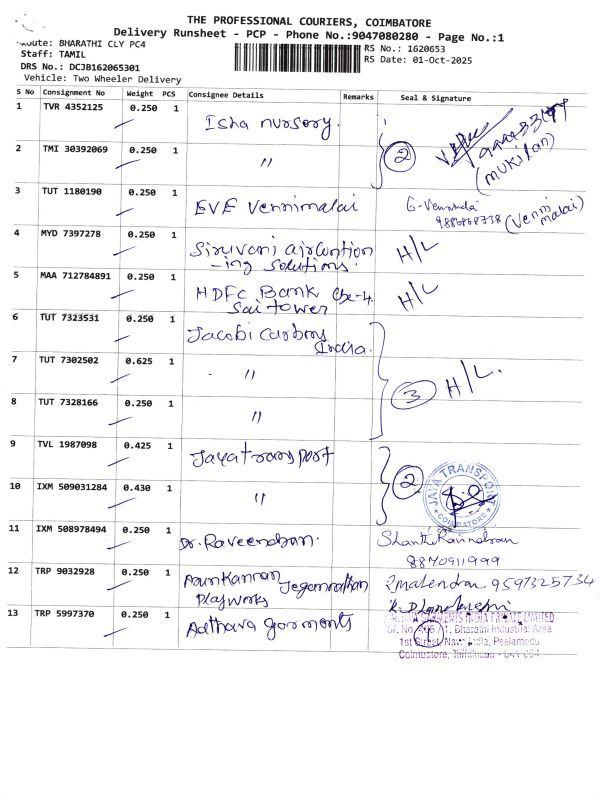 THE PROFESSIONAL COURIERS, COIMBATORE
Delivery Runsheet - PCP - Phone No.:9047080280 - Page No.:1
Route: BHARATHI CLY PC4
RS No.: 1620653
Staff: TAMIL
RS Date: 01-Oct-2025
DRS No.: DCJB162065301
Vehicle: Two Wheeler Delivery
S No Consignment No Weight PCS Consignee Details Remarks Seal & Signature
1 TVR 4352125 0.250 1 Isha nursery.
2 TMI 30392069 0.250 1 〃 2 (mukilan)
3 TUT 1180190 0.250 1 EVE Vennimalai (Venni malai)
4 MYD 7397278 0.250 1 Siruvani aircontion H/L
-ing solutions.
5 MAA 712784891 0.250 1 HDFC Bank Cbe-4. H/L
Sai tower
6 TUT 7323531 0.250 1 Jacobi carbons
India.
7 TUT 7302502 0.625 1 〃 3 H/L.
8 TUT 7328166 0.250 1 〃
9 TVL 1987098 0.425 1 Jaya transport
10 IXM 509031284 0.430 1 〃 2 JAYA TRANSPORT COIMBATORE
11 IXM 508978494 0.250 1 Dr. Raveendran.
8870911999
12 TRP 9032928 0.250 1 Jegannathan 9597325734
Playworks
13 TRP 5997370 0.250 1 Aathava garments
GARMENTS INDIA PRIVATE LIMITED
Bharathi Industrial Area
1st Street, Nava India, Peelamedu
Coimbatore, Tamilnadu - 641 004